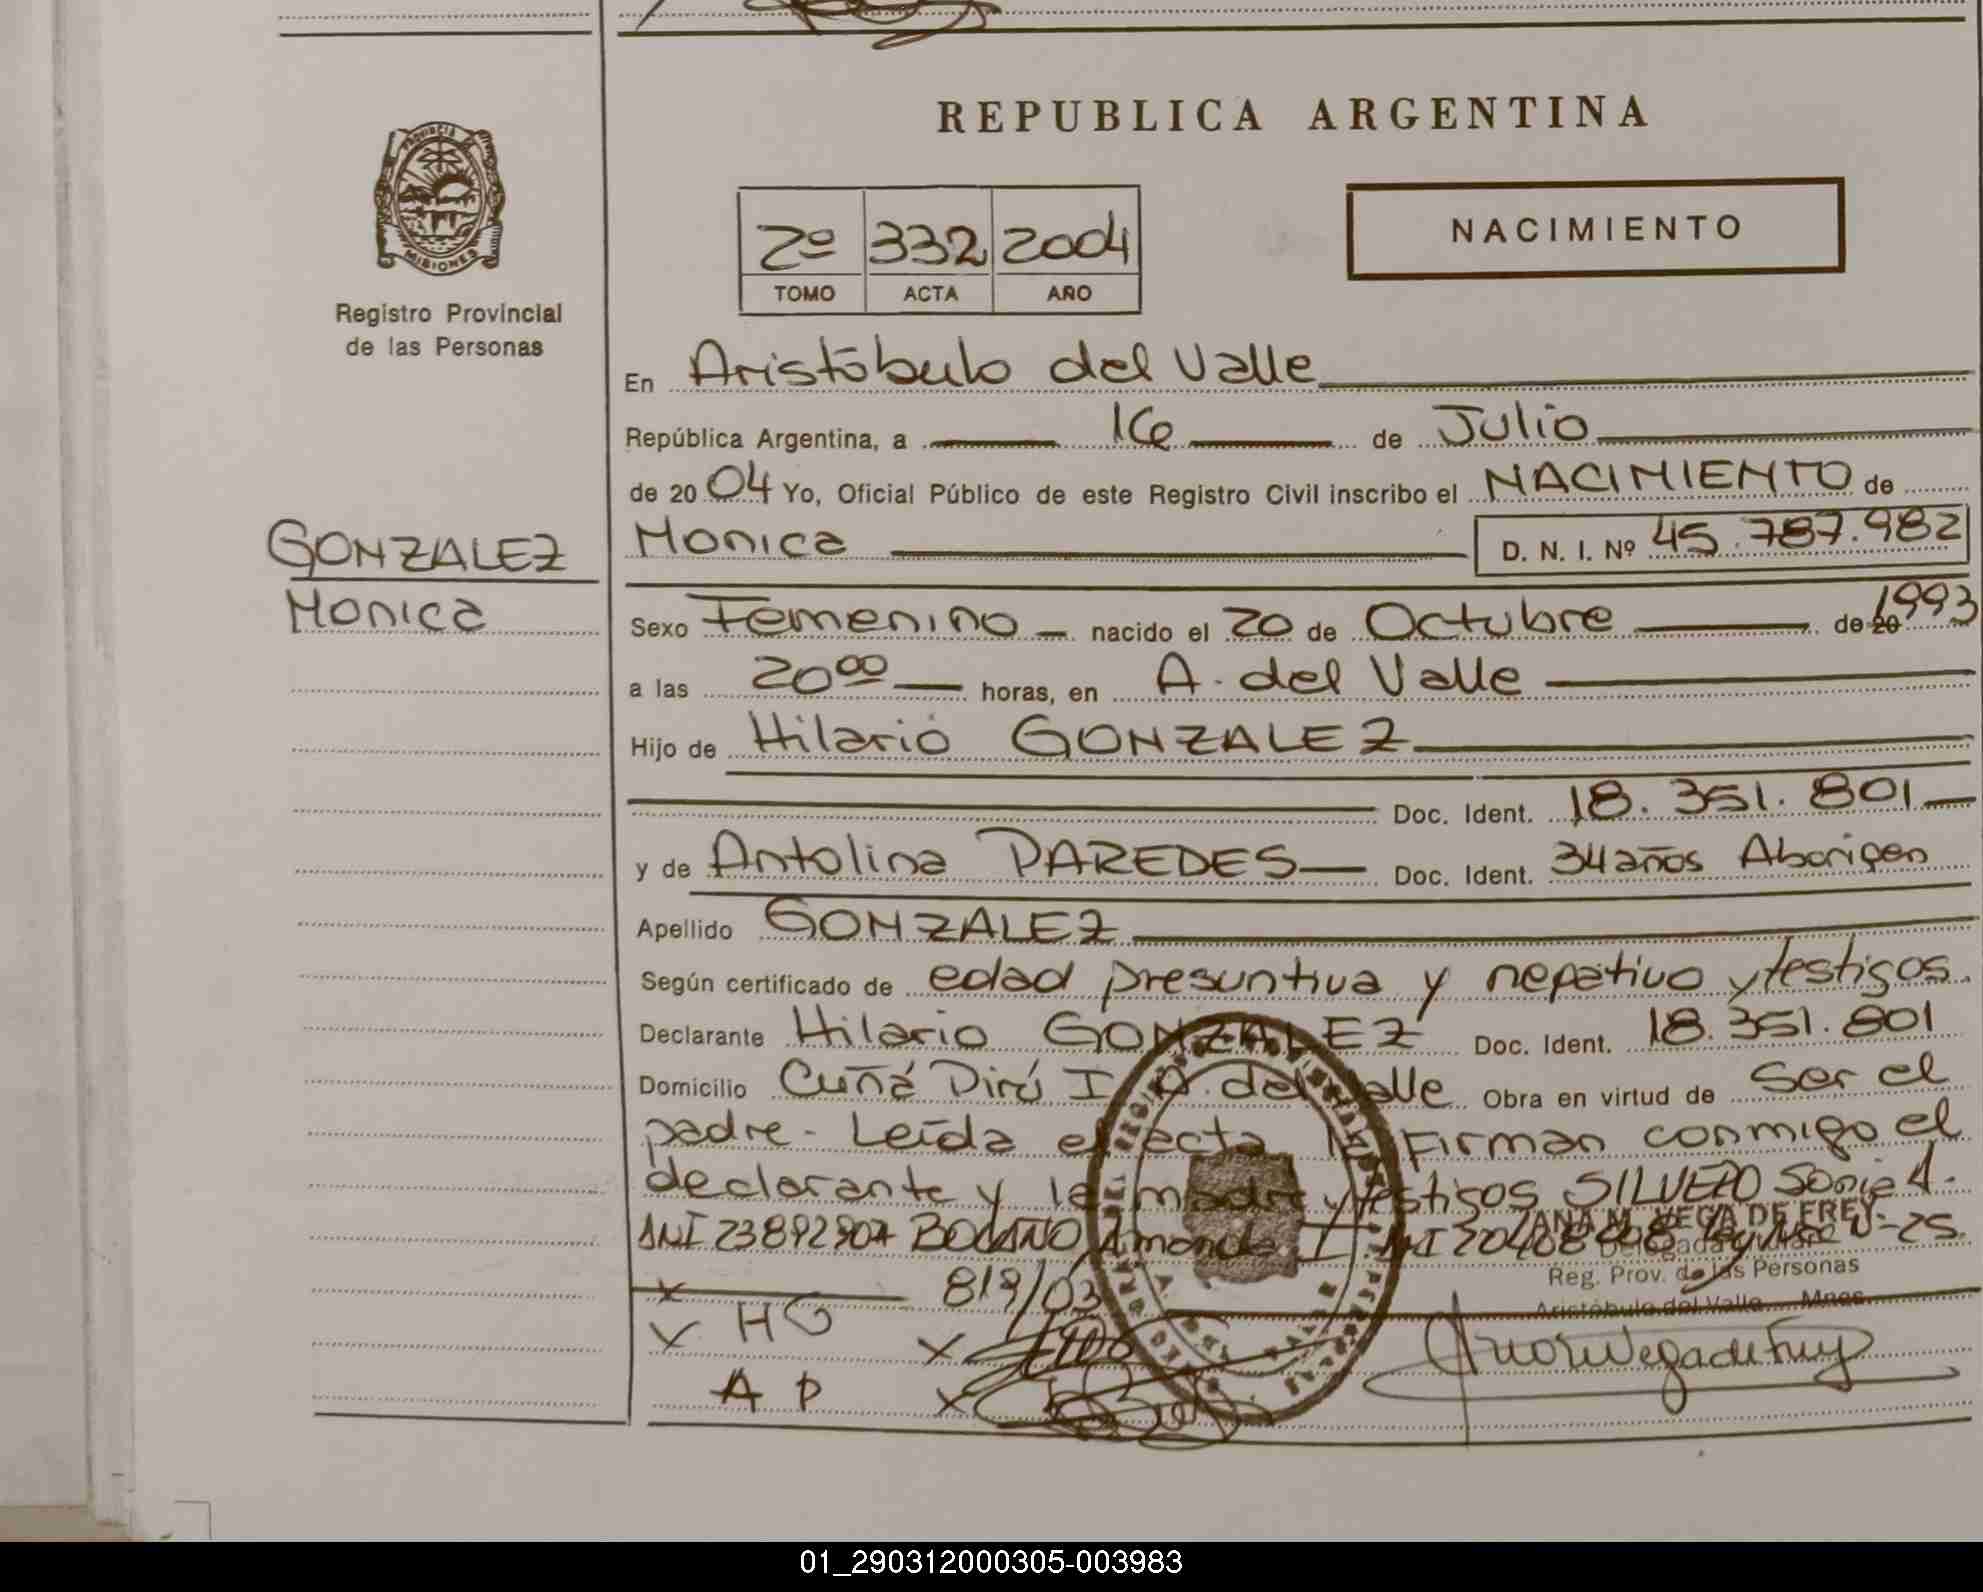 REPUBLICA ARGENTINA
PROVINCIA
MISIONES
Registro Provincial
de las Personas
NACIMIENTO
2º 332 2004
TOMO ACTA AÑO
En Aristóbulo del Valle
República Argentina, a 16 de Julio
de 2004 Yo, Oficial Público de este Registro Civil inscribo el NACIMIENTO de
GONZALEZ
Monica
Monica D. N. I. Nº 45.787.982
Sexo Femenino nacido el 20 de Octubre de 20 1993
a las 20⁰⁰ horas, en A. del Valle
Hijo de Hilario GONZALEZ
Doc. Ident. 18.351.801
y de Antolina PAREDES Doc. Ident. 34 años Aborigen
Apellido GONZALEZ
Según certificado de edad presuntiva y negativo y testigos.
Declarante Hilario GONZALEZ Doc. Ident. 18.351.801
Domicilio Cuñá Pirú I A. del Valle Obra en virtud de ser el
padre - Leída el acta la Firman conmigo el
declarante y la madre y testigos SILVERO Sonia A.
DNI Amanda DNI
ANA M. VEGA DE FREY
Delegada Titular
Reg. Prov. de las Personas
Aristóbulo del Valle Mnes.
819/03
x
x HG x
A P x
01_290312000305-003983